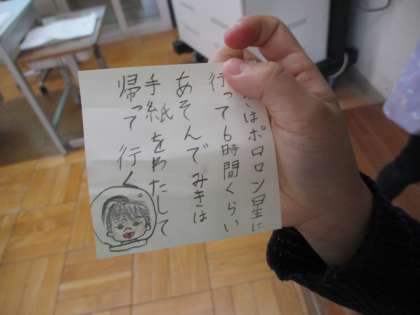 はポロロン星に
行って6時間くらい
あそんでみきは
手紙をわたして
帰って行く